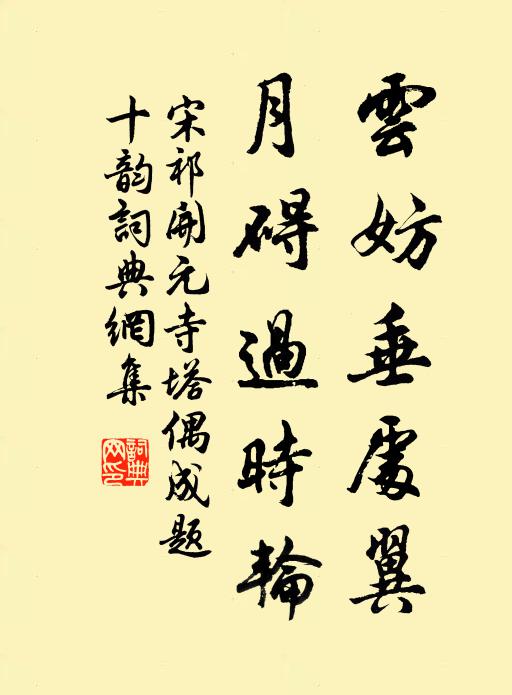 雲妨垂處翼
月碍過時輪
宋祁開元寺塔偶成題
十韵詞典網集
詞典網印